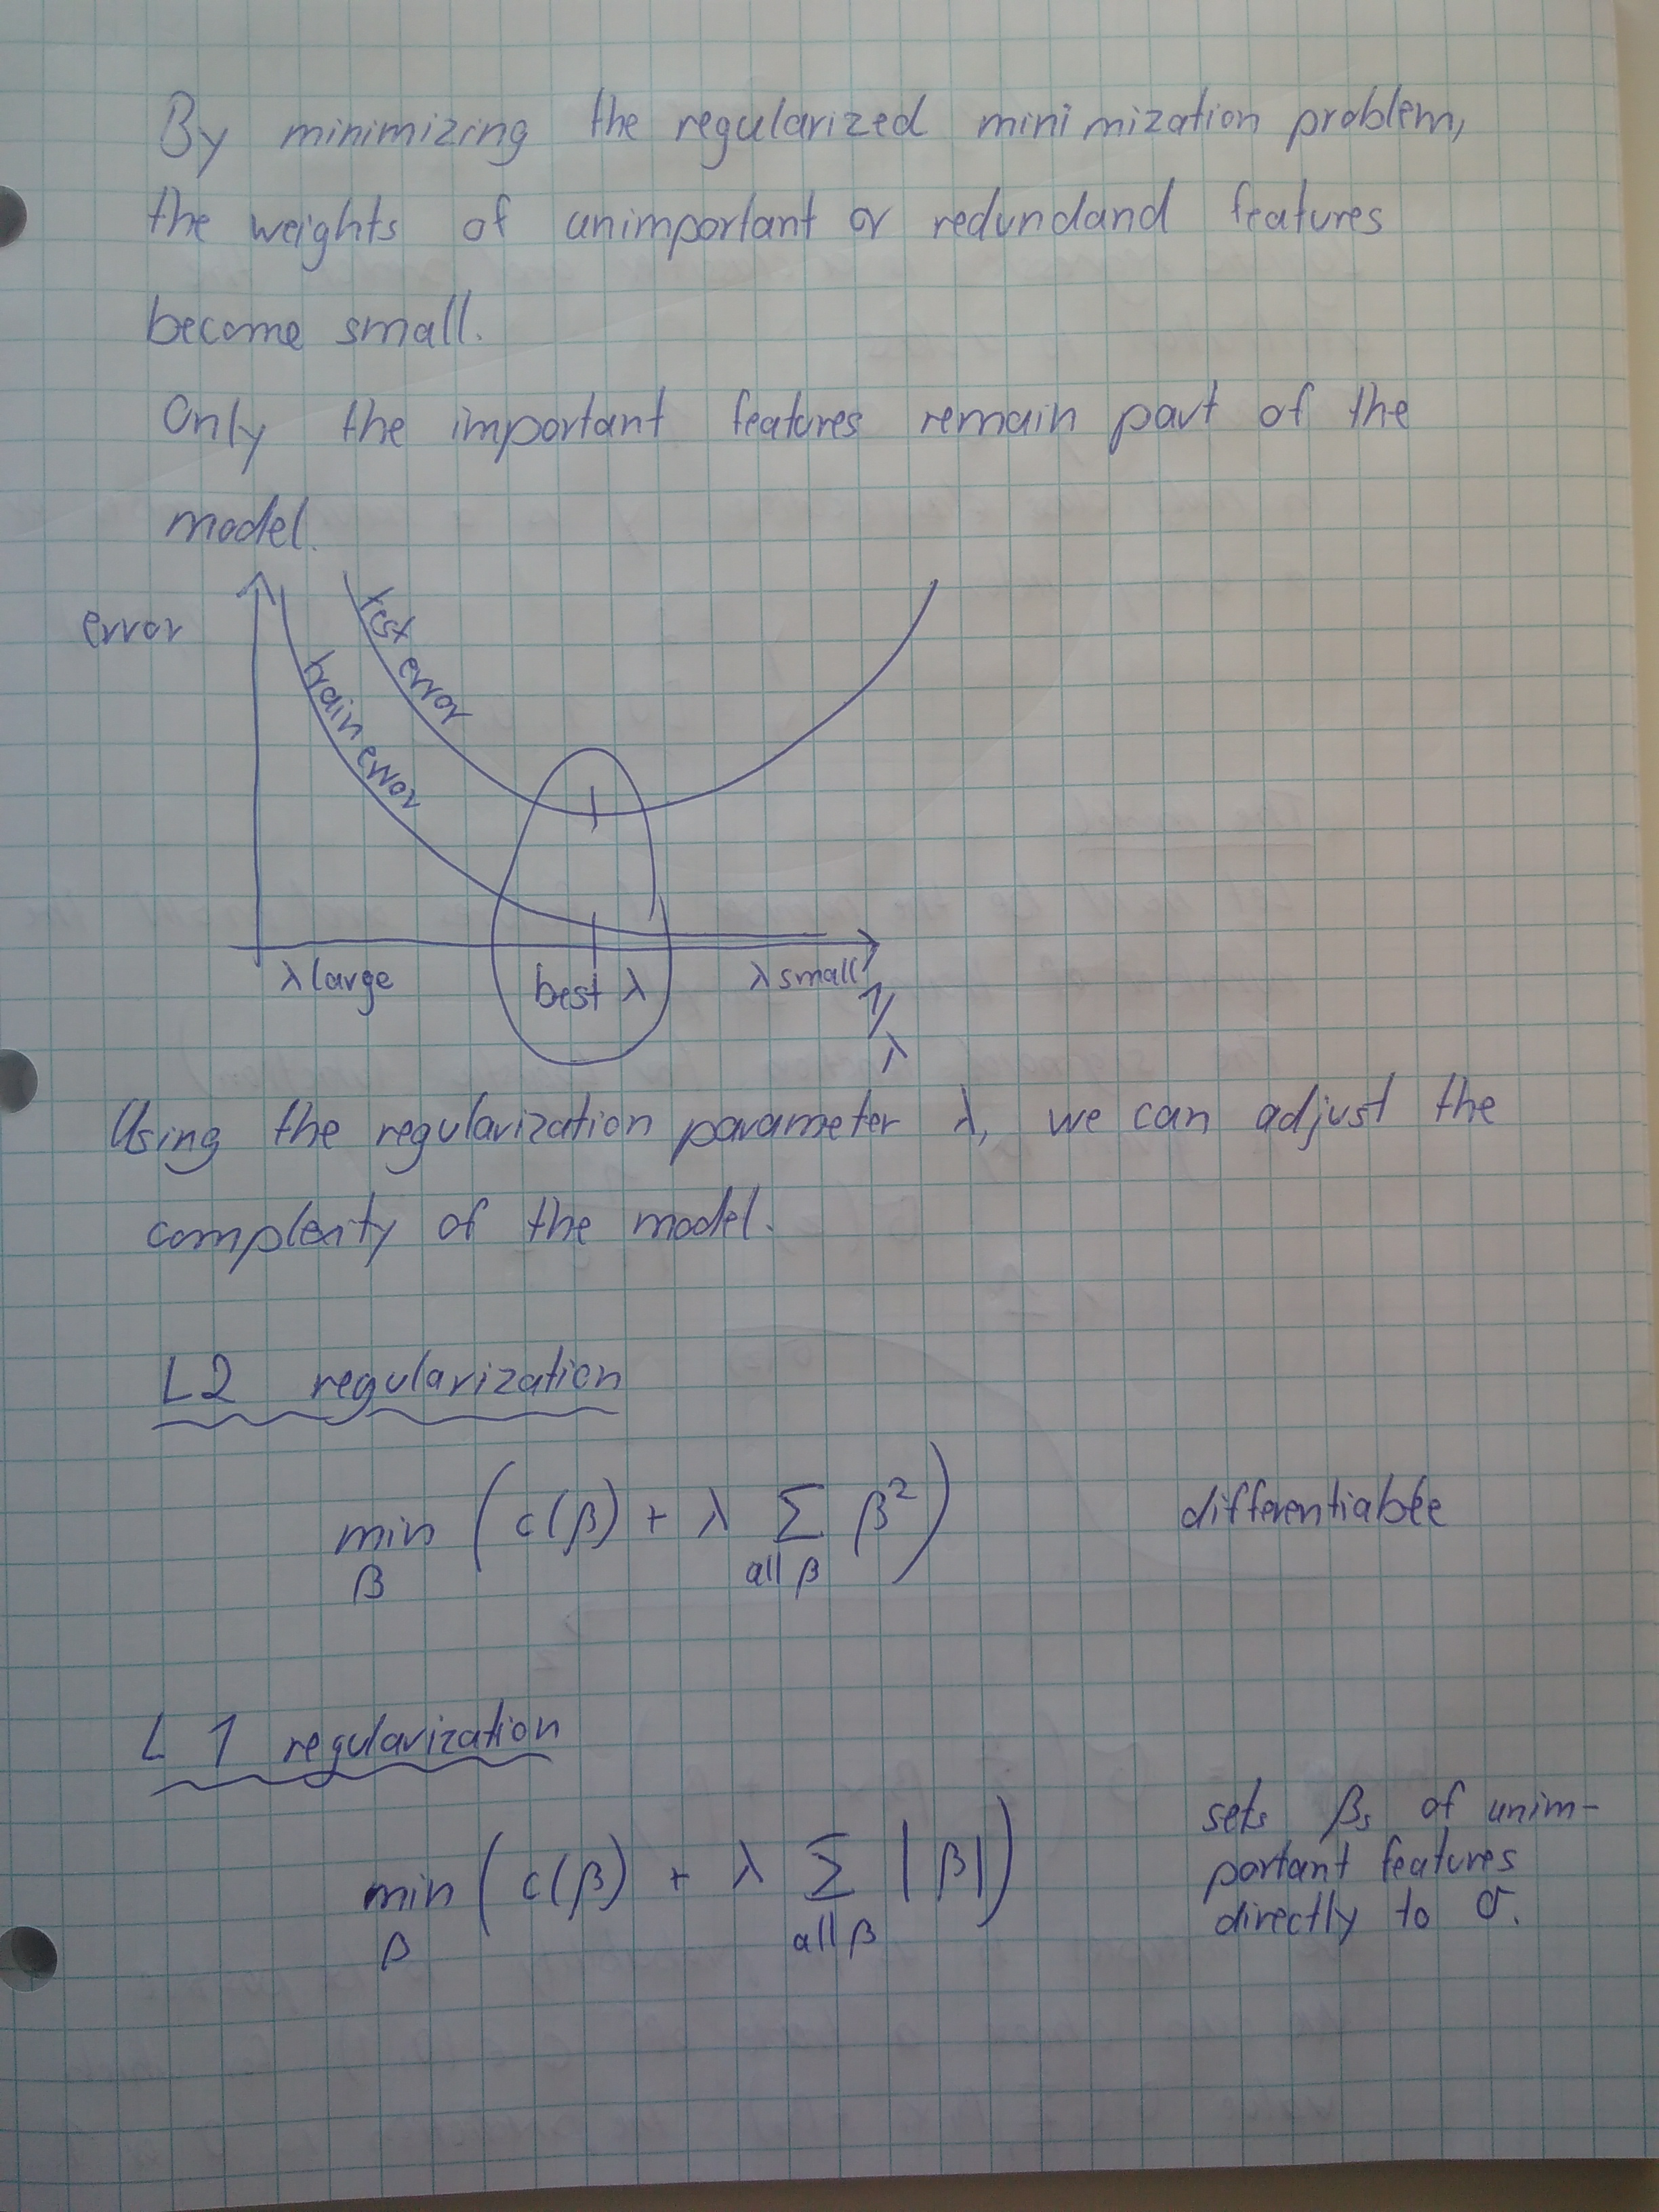 By minimizing the regularized minimization problem,
the weights of unimportant or redundand features
become small.
Only the important features remain part of the
model.
error
test error
train error
λ large
best λ
λ small
1/λ
Using the regularization parameter λ, we can adjust the
complexity of the model.
L2 regularization
min β ( c(β) + λ Σ all β β² ) differentiable
L1 regularization
min β ( c(β) + λ Σ all β |β| )
sets βs of unim-
portant features
directly to 0.